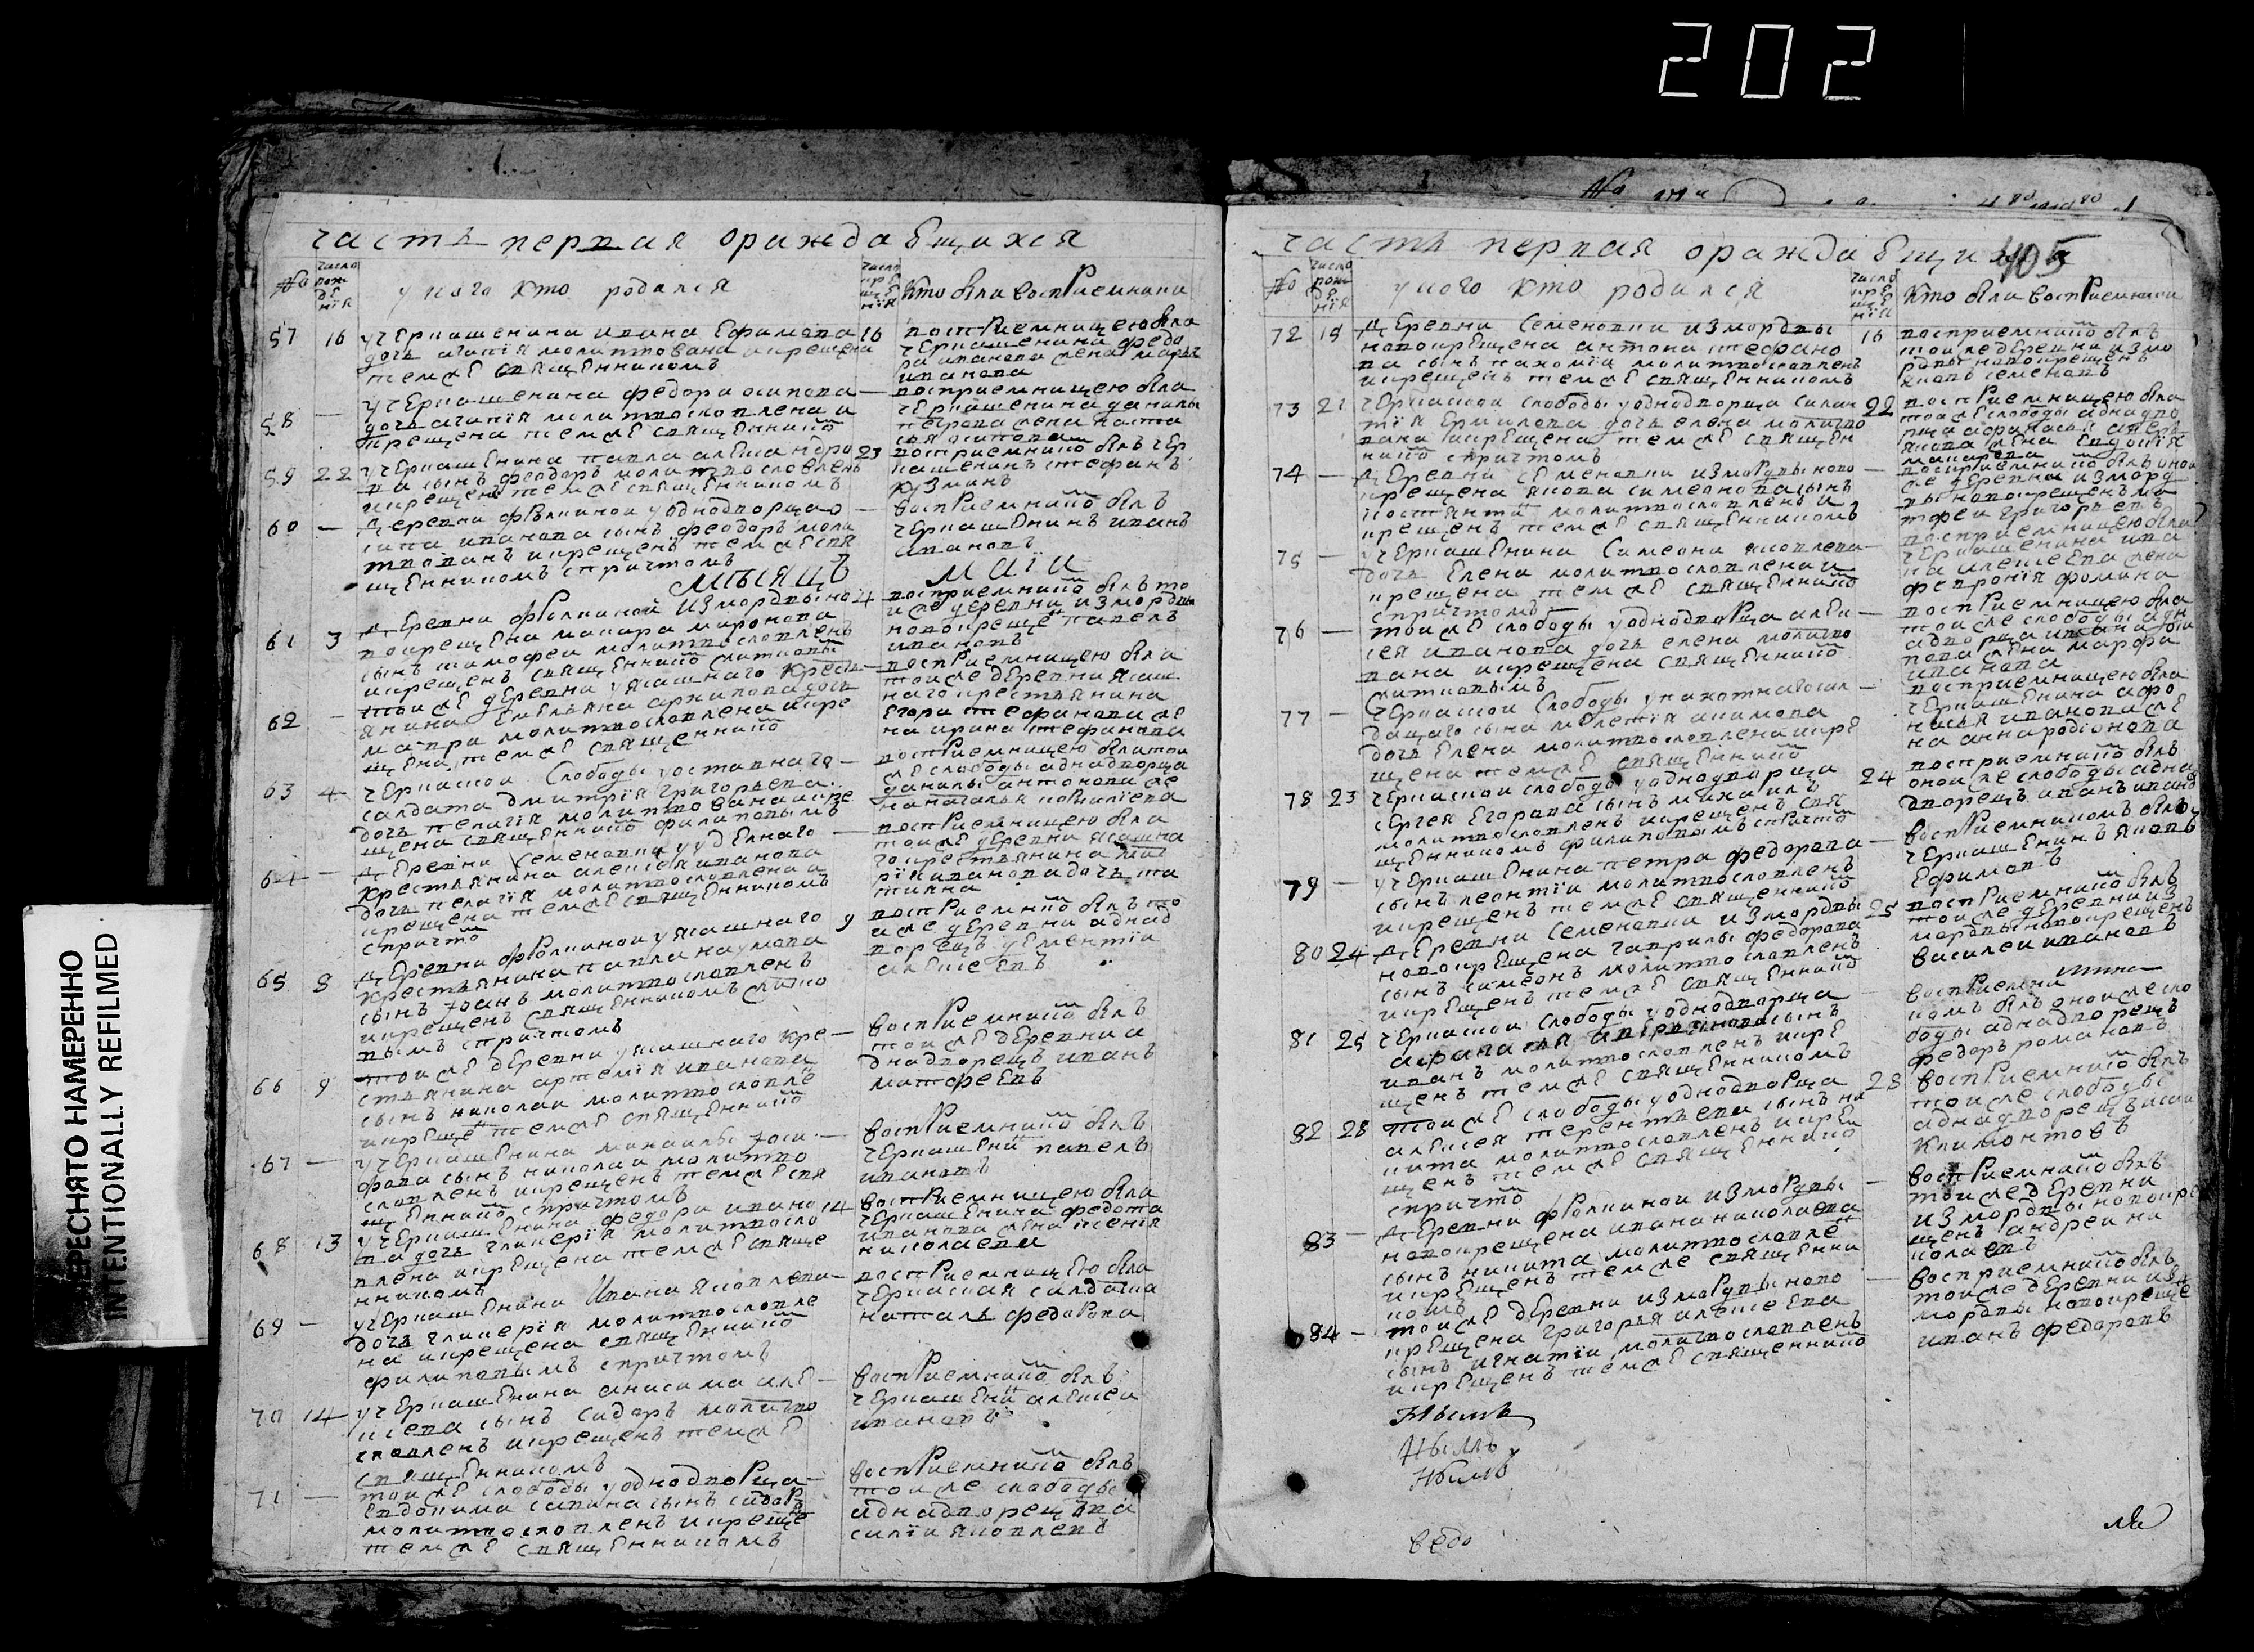 202
часть первая оражда ѣщихся
№
число рож дЕ нїя
у ково кто родился
число крЕ щЕ нїя
Кто были восприемники
57 16 у чЕркашенина ивана Ефимова 16
дочь агапїя молитвована и крещена
темжЕ священникомъ
восприемницею была
чЕркашенина федо
ра иванова жена марья
иванова
58 — у чЕркашенина федора осипова —
дочь агапїя молитвословлена и
крещена темжЕ священнико
восприемницею была
чЕркашенина данилы
петрова жена наста
сья осипова
59 22 у чЕркашЕнина павла алеѯандро 23
ва сынъ феодоръ молитвословленъ
и крещенъ темжЕ священникомъ
восприемнико былъ чЕр
кашенинъ стефанъ
кузминъ
60 — дЕревни фѣлкиной у однодворца —
ивана иванова сынъ феодоръ моли
твованъ и крещенъ темжЕ свя
щЕнникомъ спричтомъ
восприемнико былъ
чЕркашЕнинъ иванъ
ивановъ
мѣсяцъ маїа
61 3 дЕревни фѣлкиной из мордвы но 4
вокрещена макара миронова
сынъ тимофеи молитвословленъ
и крещенъ священнико
восприемнико былъ то
и же дЕревни из мордвы
новокреще павелъ
ивановъ
62 — тои жЕ дЕревни у ясашного крест —
янина Емельяна архипова дочь
мавра молитвословлена и кре
щЕна темжЕ священнико
восприемницею была
тои же дЕревни ясаш
наго крестьянина
Егора стефанова жЕ
на ирина стефанова
63 4 чЕркаской слободы у отставнаго —
салдата дмитрїя григорьева
дочь пелагїя молитвована и кре
щена священнико филиповымъ
восприемницею была той
жЕ слободы аднадворца
данилы антонова же
на наталья
64 — дЕревни семеновки у удЕлнаго —
крестьянина алеѯея иванова
дочь пелагїя молитвословлена и
крещена темжЕ священникомъ
спричто
восприемницею была
тои же дЕревни ясашна
го крестьянина
иванова дочь та
тияна
65 8 дЕревни фѣлкиной у ясашнаго 9
крестьянина павла наумова
сынъ їоанъ молитвословленъ
и крещенъ священникомъ
вымъ спричтомъ
восприемнико былъ то
и же дЕревни аднад
ворецъ дЕментїи
алеѯеЕвъ
66 9 тои жЕ дЕревни у ясашнаго кре —
стьянина артемїя иванова
сынъ николаи молитвословле
и крещЕ темжЕ священнико
восприемнико былъ
тои жЕ дЕревни а
днадворецъ иванъ
матфеЕвъ
67 — у чЕркашЕнина михаилы їоси —
фова сынъ николаи молитво
словленъ и крещенъ темжЕ свя
щЕннико спричтомъ
восприемнико былъ
чЕркашЕни павелъ
ивановъ
68 13 у чЕркашЕнина федора ивано 14
ва дочь гликерїя молитвосло
влена и крещена темжЕ свяще
нникомъ
восприемницею была
чЕркашЕнина федота
иванова жЕна ѯенїя
николаева
69 — у чЕркашЕнина Ивана яковлева —
дочь гликерїя молитвословле
на и крещена священнико
филиповымъ спричтомъ
восприемницЕю была
чЕркаская салдатка
наталья федорова
70 14 у чЕркашЕнина анисима алЕ —
ѯеева сынъ сидоръ молитво
словленъ и крещенъ темжЕ
священникомъ
восприемнико былъ
чЕркашЕни алеѯеи
ивановъ
71 — тои жЕ слободы у однодворца —
Евдокима савина сынъ сидоръ
молитвословленъ и креще
темжЕ священникомъ
восприемнико былъ
тои же слободы
аднадворецъ ва
силїи яковлевъ
часть первая оражда ѣщи
405
№
число рож дЕ нїя
у ково кто родился
число крЕ щЕ нїя
Кто были восприемники
72 15 дЕревни Семеновки из мордвы 16
новокрещена антона стефано
ва сынъ пахомїи молитвословленъ
и крещенъ темжЕ священникомъ
восприемнико былъ
тои же дЕревни из мо
рдвы новокрещенъ
яковъ семеновъ
73 21 чЕркаской слободы у однодворца силан 22
тїя Ермилова дочь елена молитво
вана и крещена темжЕ священ
нико спричтомъ
восприемницею была
тои жЕ слободы аднадво
рца афанасия
жЕна Евдокїя
макарова
74 — дЕревни сЕменовки из мордвы ново —
крещена якова симеонова сынъ
костянти молитвословленъ и
крещенъ темжЕ священникомъ
восприемнико былъ оной
же дЕревни из морд
вы новокрещенъ ма
тфеи григорьевъ
75 — у чЕркашЕнина Симеона яковлева —
дочь Елена молитвословлена и
крещена темжЕ священнико
спричтомъ
восприемницею была
чЕркашенина ива
на алеѯеева жена
феврония фомина
76 — тои жЕ слободы у однодворца алеѯ —
ѯея иванова дочь елена молитво
вана и крещена священнико
восприемницею была
тои же слободы адн
адворца ивана
жЕна марфа
иванова
77 — чЕркаской Слободы у пахотнаго сал —
дацкаго сына мелетїя акимова
дочь Елена молитвословлена и крЕ
щена темжЕ священнико
восприемницею была
чЕркашЕнина афо
насья иванова жЕ
на анна родионова
78 23 чЕркаской слободы у однодворца 24
сергея Егорова сынъ михаилъ
молитвословленъ и крещенъ свя
щЕнникомъ филиповымъ спричто
восприемнико былъ
оной же слободы адна
дворецъ иванъ ивано
79 — у чЕркашЕнина петра федорова —
сынъ леонтїи молитвословленъ
и крещенъ темжЕ священнико
восприемникомъ былъ
чЕркашЕнинъ яковъ
Ефимовъ
80 24 дЕревни Семеновки из мордвы 25
новокрещена гаврилы федорова
сынъ симеонъ молитвословленъ
и крещенъ темжЕ священнико
восприемнико былъ
тои же дЕревни из
мордвы новокрещенъ
василеи ивановъ
81 25 чЕркаской слободы у однодворца
афанасия сынъ
иванъ молитвословленъ и крЕ
щенъ темжЕ священникомъ
восприемни
комъ былъ оной же сло
боды аднадворецъ
федоръ романовъ
82 28 тои жЕ слободы у однодворца 28
алеѯея терентьева сынъ ни
кита молитвословленъ и крЕ
щенъ темжЕ священнико
спричто
восприемнико былъ
тои же слободы
аднадворецъ
Климонтовъ
83 — дЕревни фѣлкиной из мордвы —
новокрещена ивана николаева
сынъ никита молитвословле
и крещенъ темже священни
комъ
восприемнико былъ
тои же дЕревни
из мордвы новокре
щенъ андреи ни
колаевъ
84 — тои жЕ дЕревни из мордвы ново —
крЕщена григорья алеѯеЕва
сынъ игнатїи молитвословленъ
и крещенъ темжЕ священнико
восприемнико былъ
тои же дЕревни из
мордвы новокреще
иванъ федоровъ
ведо
ПЕРЕСНЯТО НАМЕРЕННО
INTENTIONALLY REFILMED